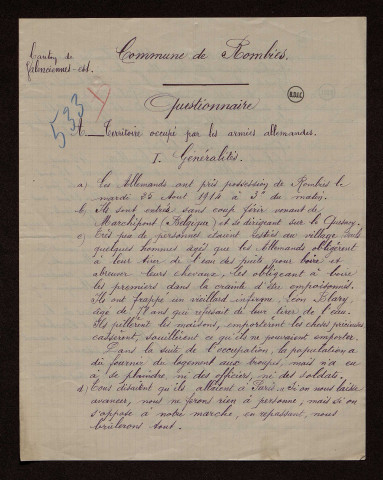 Canton de
Valenciennes-est.
Commune de Rombies.
533
Questionnaire
B.D.I.C
A. Territoire occupé par les armées allemandes.
I. Généralités.
a) Les Allemands ont pris possession de Rombies le
mardi 25 Août 1914 à 3h du matin.
b) Ils sont entrés sans coup férir venant de
Marchipont (Belgique) et se dirigeant sur le Quesnoy.
c) Très peu de personnes étaient restées au village. Seuls
quelques hommes âgés que les Allemands obligèrent
à leur tirer de l'eau des puits pour boire et
abreuver leurs chevaux. Les obligeant à boire
les premiers dans la crainte d'être empoisonnés.
Ils ont frappé un vieillard infirme, Léon Blary,
âgé de 71 ans qui refusait de leur tirer de l'eau.
Ils pillèrent les maisons, emportèrent les choses précieuses
cassèrent, souillèrent ce qu'ils ne pouvaient emporter.
Dans la suite de l'occupation, la population a
dû fournir du logement aux troupes, mais n'a eu
à se plaindre, ni des officiers, ni des soldats.
d) Tous disaient qu'ils allaient à Paris. "Si on nous laisse
avancer, nous ne ferons rien à personne, mais si on
s'oppose à notre marche, en repassant, nous
brûlerons tout.